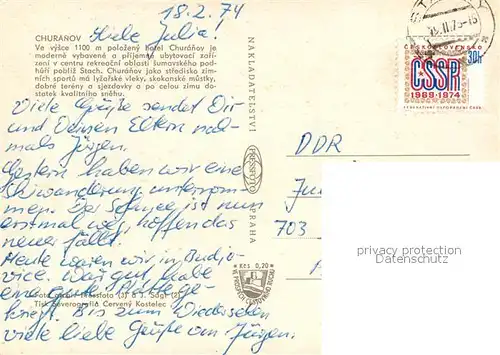 18.2.74
Liebe Julia!
CHURÁŇOV
Ve výšce 1100 m položený hotel Churáňov je
moderně vybavené a příjemné ubytovací zaří-
zení v centru rekreační oblasti šumavského pod-
hůří poblíž Stach. Churáňov jako středisko zim-
ních sportů má lyžařské vleky, skokanské můstky,
dobré terény a sjezdovky a po celou zimu do-
statek kvalitního sněhu.
Viele Grüße sendet Dir
und Deinen Eltern noch-
mals Jürgen.
Gestern haben wir eine
Skiwanderung unternom-
men. Der Schnee ist nun
erstmal weg, hoffen das
neuer fällt.
Heute waren wir in Budjo-
vice. War gut, habe
eine gute Platte ge-
kriegt. Bis zum Wiedersehen
viele liebe Grüße von Jürgen.
Foto Orbis Pressfoto (3) a J. Ságl (2)
Tisk Severografia Červený Kostelec
NAKLADATELSTVÍ
PRESSFOTO
PRAHA
Kčs 0,20
ČESKOSLOVENSKO
30h
ČSSR
1969-1974
FEDERATIVNÍ USPOŘÁDÁNÍ ČSSR
DDR
703
privacy protection
Datenschutz